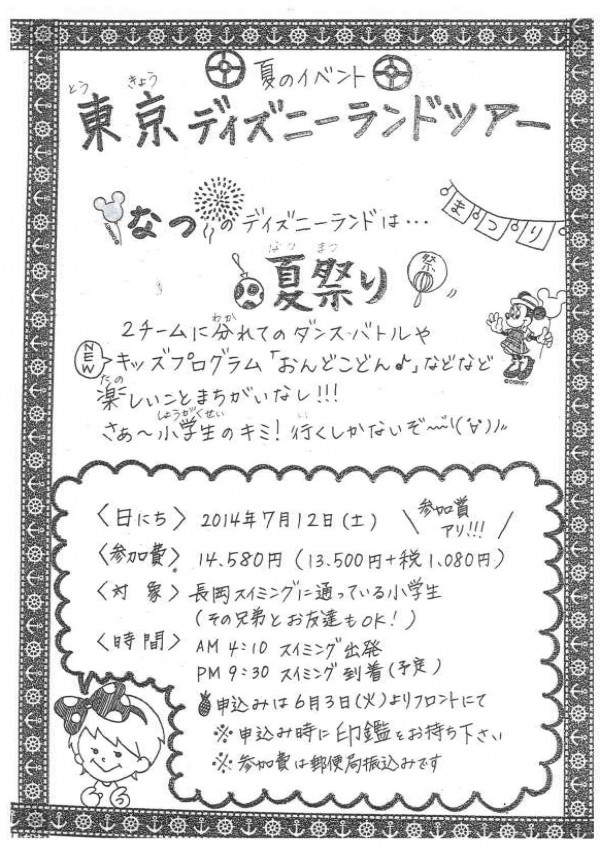 夏のイベント
とう きょう
東京ディズニーランドツアー
まつり
なつのディズニーランドは…
なつ まつ
夏祭り
祭
わか
2チームに分れてのダンスバトルや
NEW キッズプログラム「おんどこどん♪」などなど
たの
楽しいことまちがいなし!!!
しょうがくせい い
さぁ〜小学生のキミ!行くしかないぞ〜
©DISNEY
〈日にち〉 2014年7月12日(土)
参加賞
アリ!!!
〈参加費〉 14.580円(13.500円+税1.080円)
〈対象〉 長岡スイミングに通っている小学生
(その兄弟とお友達もOK!)
〈時間〉 AM 4:10 スイミング出発
PM 9:30 スイミング到着(予定)
申込みは6月3日(火)よりフロントにて
※申込み時に印鑑をお持ち下さい
※参加費は郵便局振込みです